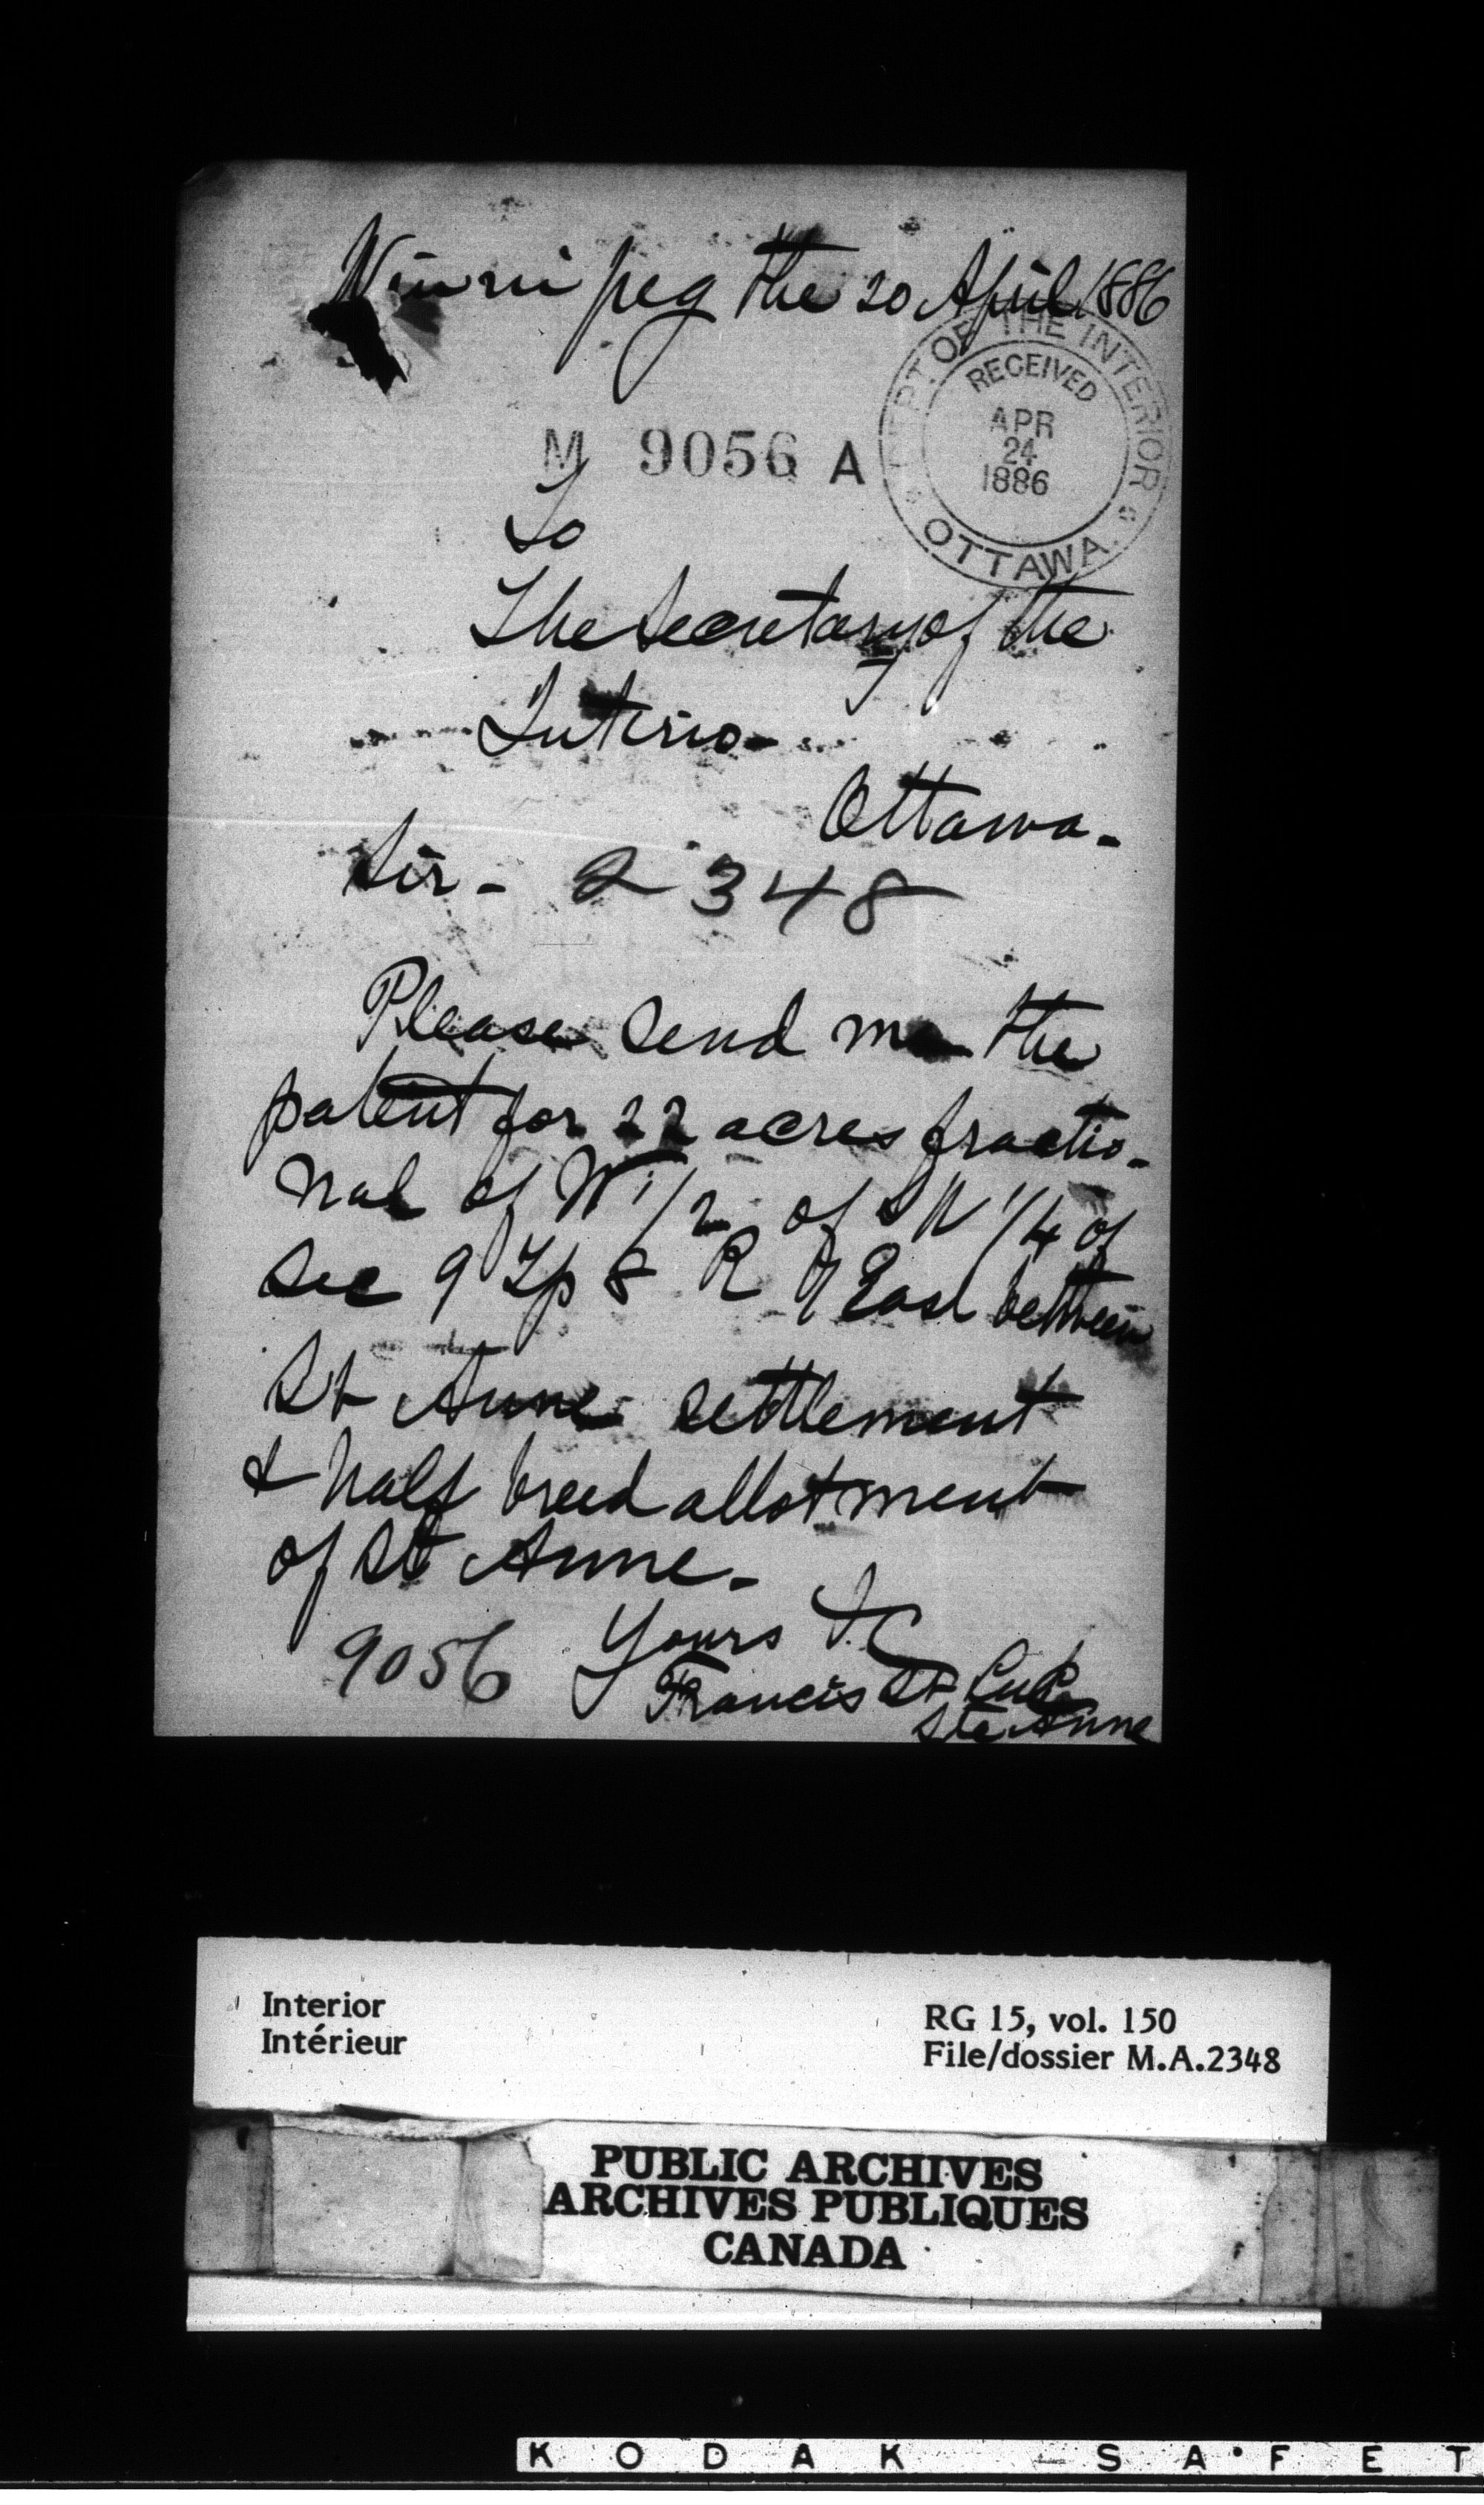 Winnipeg the 20 April 1886
DEPT OF THE INTERIOR
RECEIVED
APR
24
1886
OTTAWA.
M 9056 A
To
The Secretary of the
Interior
Ottawa.
Sir - 2348
Please send me the
patent for 22 acres fractio-
nal of W 1/2 of S W 1/4 of
Sec 9 Tp 8 R 7 East between
St Anne settlement
& half breed allotment
of St Anne.
Yours &c
9056 Francis St Luc
Ste Anne
Interior
Intérieur
RG 15, vol. 150
File/dossier M.A.2348
PUBLIC ARCHIVES
ARCHIVES PUBLIQUES
CANADA
KODAK SAFET